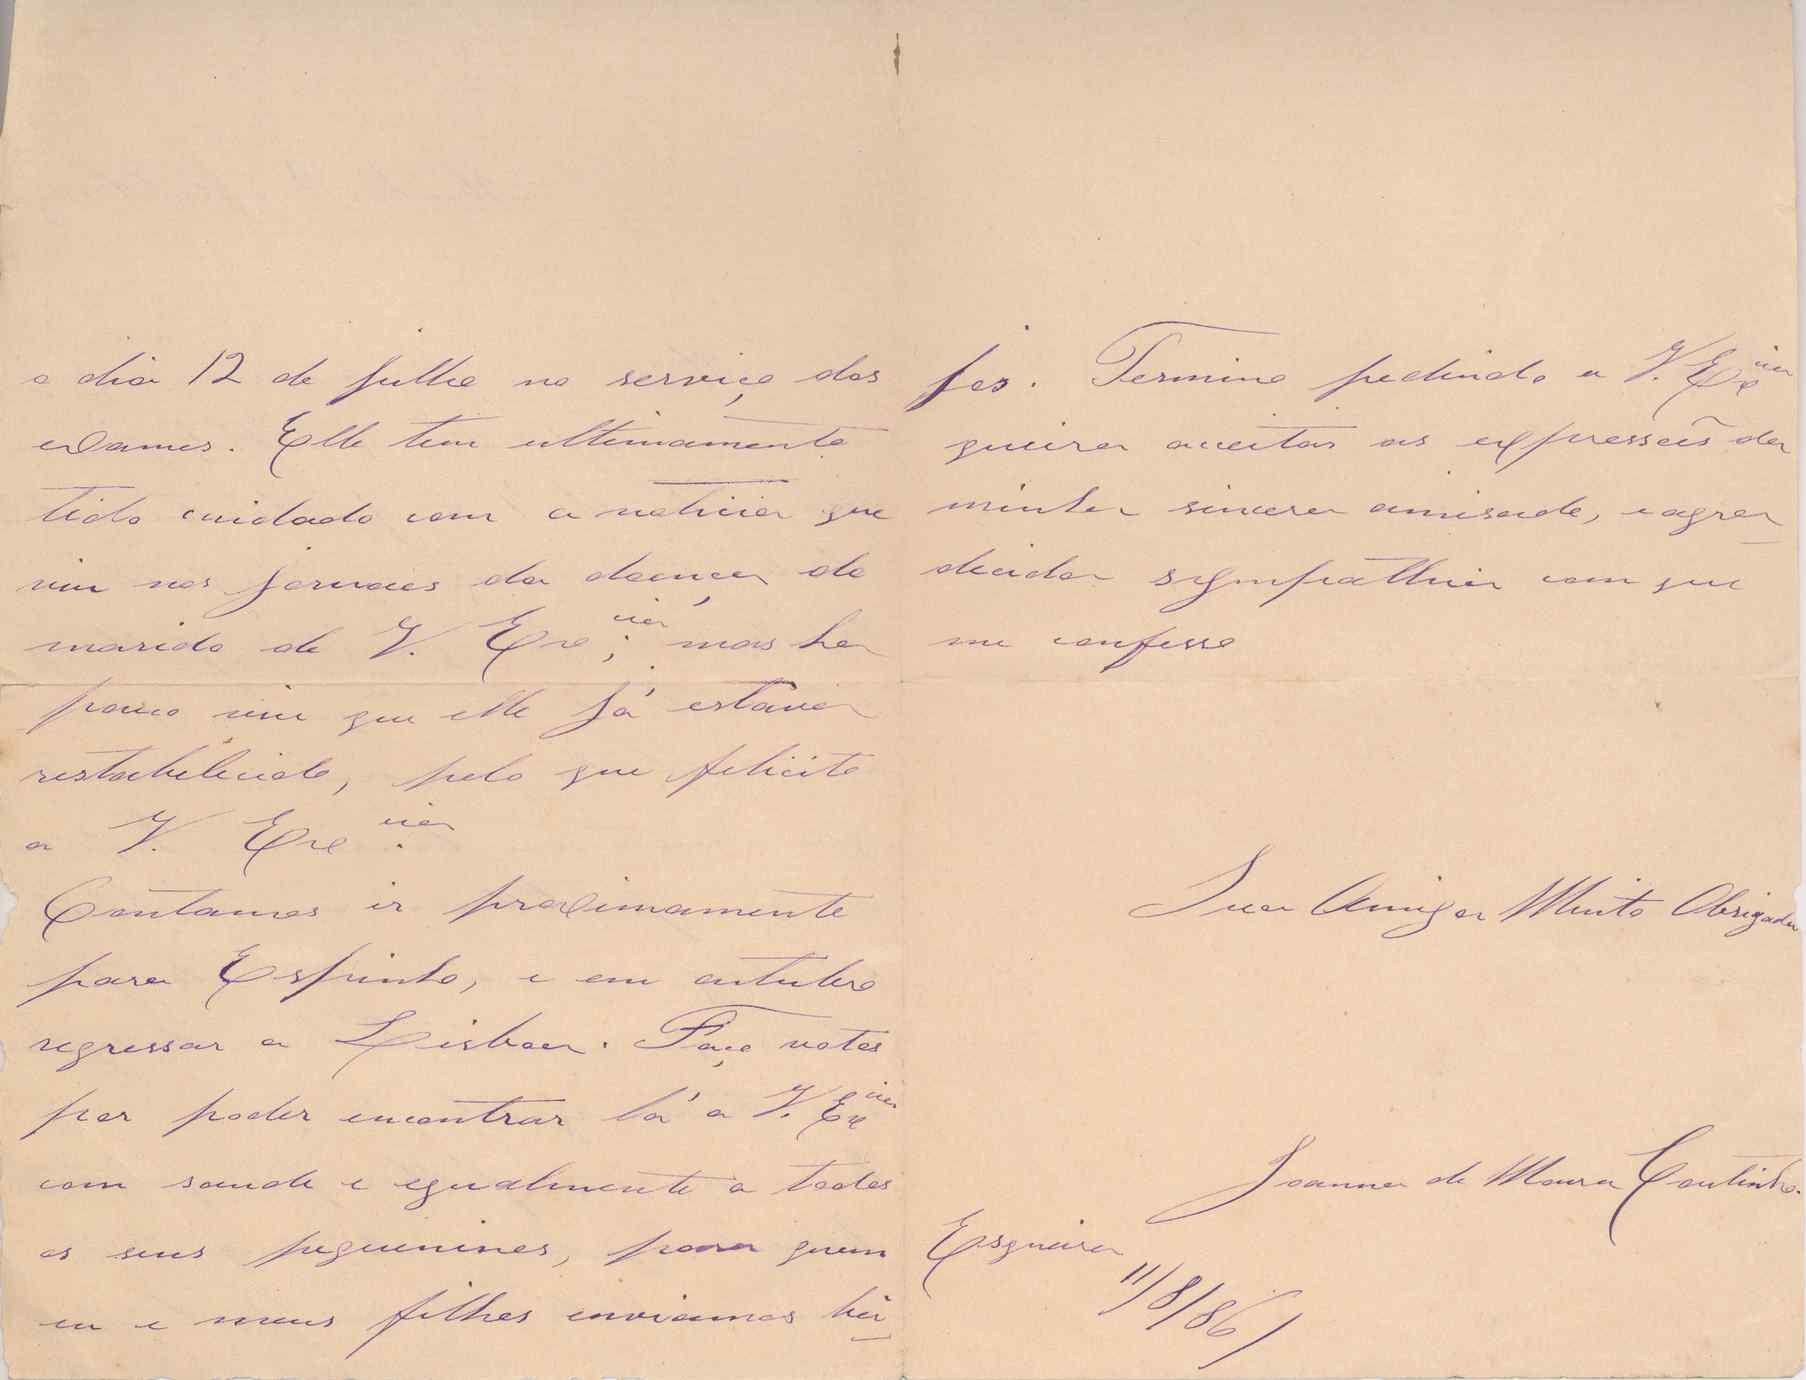 o dia 12 de julho no serviço dos
exames. Elle tem ultimamente
tido cuidado com a noticia que
viu nos jornaes da doença do
marido de V. Exᶜⁱᵃ; mas ha
pouco viu que elle já estava
restabelecido, pelo que felicito
a V. Exᶜⁱᵃ.
Contamos ir proximamente
para Espinho, e em outubro
regressar a Lisboa. Faço votos
por poder encontrar lá a V. Exᶜⁱᵃ
com saude e egualmente a todos
os seus pequeninos, para quem
eu e meus filhos enviamos bei-
jos. Termino pedindo a V. Exᶜⁱᵃ
queira aceitar as expressões da
minha sincera amisade, e agra-
decida sympathia com que
me confesso
Sua Amiga Muito Obrigada
Joanna de Moura Coutinho.
Esgueira
11/8/86/